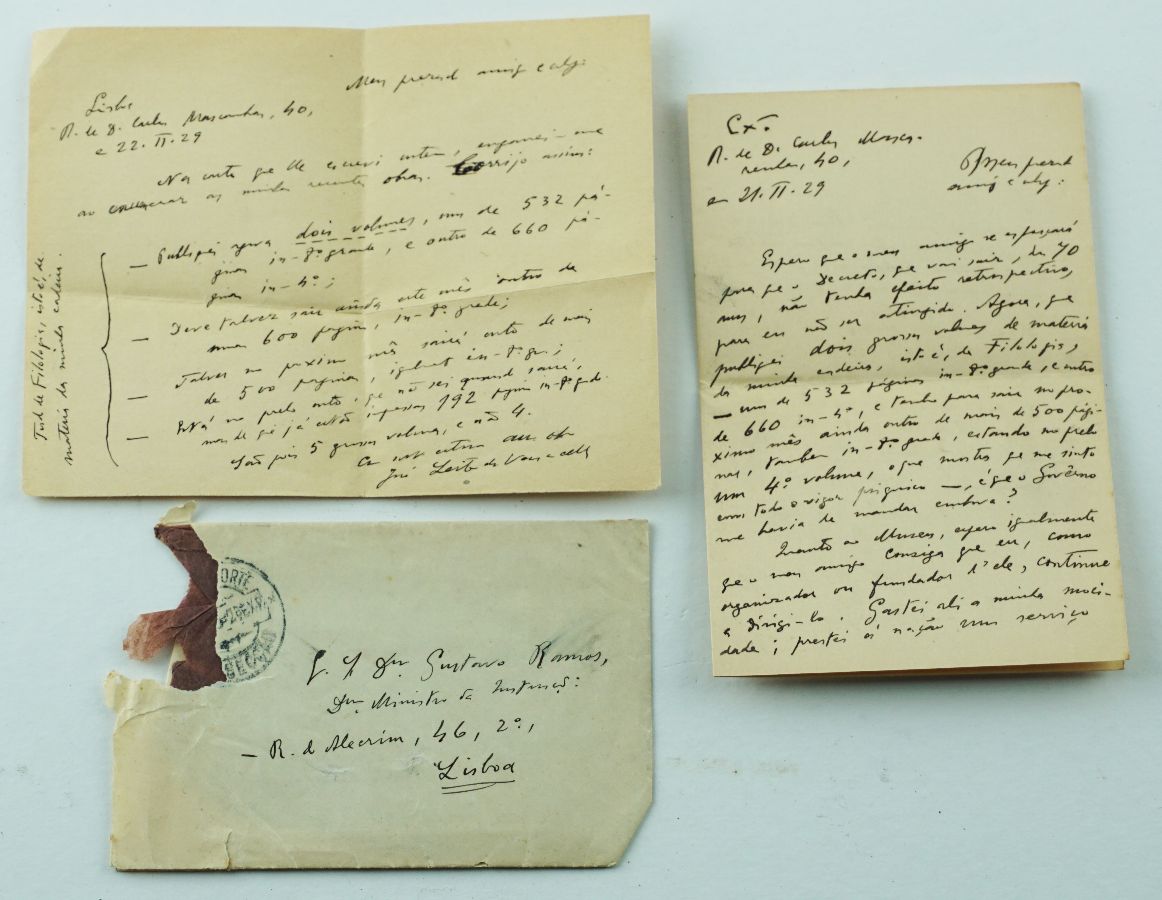 Meu prezad amig e colg:
Lisbo
R. de D. Carlos Mascarenhas, 40,
e 22.II.29
Na carta qe lhe escrevi ontem, enganei-me
ao enumerar as minhas recentes obras. Corrijo assim:
— Publiquei agora dois volumes, um de 532 pá-
ginas in-8º grande, e outro de 660 pá-
ginas in-4º;
— Deve talvez sair ainda este mês outro de
umas 600 páginas, in-8º grade;
— Talvez no proximo mês sairá outo de mais
de 500 páginas, igualmt in-8º gr.;
— Está no prelo outo, qe não sei quand sairá,
mas de qe já estão impressas 192 págin in-8º grde.
São pois 5 grossos volumes, e não 4.
Co
José Leite de Vasconcellos
Tudo de Filologia, isto é, de
materia da minha cadeira.
Cxº.
R. de D. Carlos Masca-
renhas, 40,
e 21.II.29
Meu prezad
amig e colg:
Espero qe o meu amigo se esforçará
para qe o Decreto, qe vai sair, dos 70
anos, não tenha efeito retrospectivo,
para eu não ser atingido. Agora, qe
publiquei dois grossos volumes de materia
da minha cadeira, isto é, de Filologia,
— um de 532 páginas in-8º grande, e outro
de 660 in-4º, e tenho para sair no pro-
ximo mês ainda outro de mais de 500 pági-
nas, tambem in-8º grade, estando no prelo
um 4º volume, o que mostra qe me sinto
com todo o vigor psiquico —, é qe o Govêrno
me havia de mandar embora?
Quanto ao Museu, espero igualmente
qe o meu amigo consiga qe eu, como
organizador ou fundador d'ele, continue
a dirigi-lo. Gastei ali a minha moci-
dade; prestei á nação um serviço
Gustavo Ramos,
Dmº Ministro da Instrução:
— R. d Alecrim, 46, 2º,
Lisboa